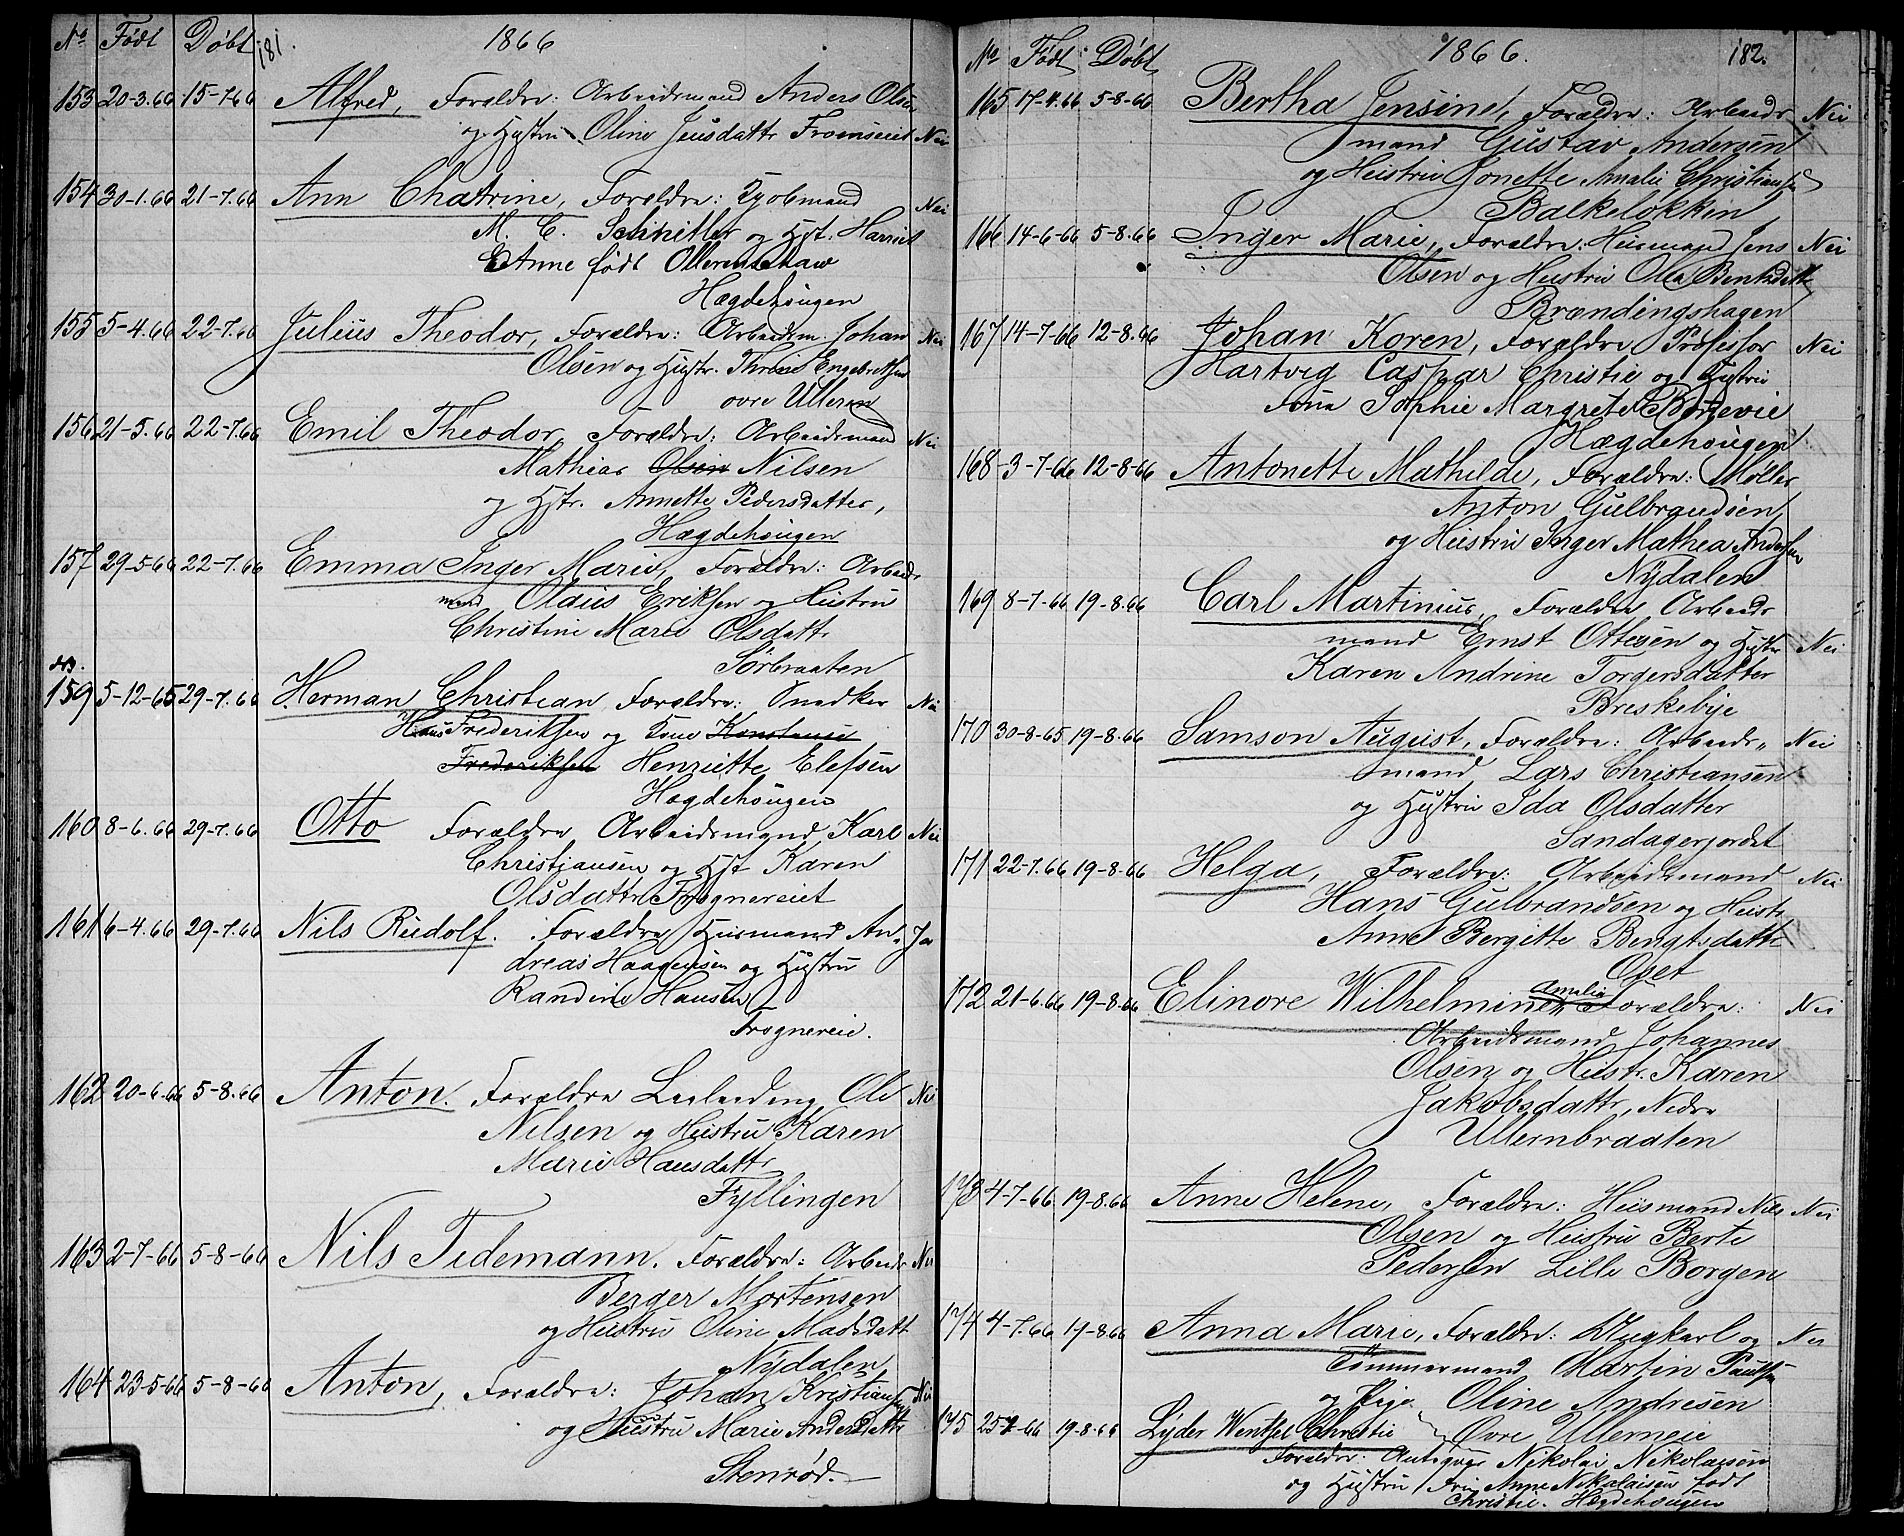 No Født Døbt 181. 1866
153 20-3.66 15-7.66 Alfred, Forældre: Arbeidsmand Anders Olsen
og Hustru Oline Jensdattr Nei
154 30-1.66 21-7.66 Ann Chatrine, Forældre: Kjøbmand Nei
M. C. Schnitler og Hst. Harriet
Anne født Ollerenschaw
Hægdehougen
155 5-4.66 22-7.66 Julius Theodor, Forældre: Arbeidsm. Johan Nei
Olsen og Hustr. Engebretsen
øvre Ulleren
156 21-5.66 22-7.66 Emil Theodor, Forældre: Arbeidsmand Nei
Mathias Olsen Nilsen
og Hstr. Annette Pedersdatter,
Hægdehougen
157 29-5.66 22-7.66 Emma Inger Marie, Forældre: Arbeids
mand Olaus Eriksen og Hustru
Christine Marie Olsdattr
Sørbraaten
159 5-12-65 29-7.66 Herman Christian, Forældre: Snedker Nei
Hans Frederiksen og Kone Konstanse
Frederiksen Henriette Elefsen
Hægdehougen
160 8-6.66 29-7.66 Otto Forældre Arbeidsmand Karl Nei
Christiansen og Hst Karen
Olsdattr Frognereiet
161 6-4.66 29-7.66 Nils Rudolf. Forældre Husmand An- Ja
dreas Haagensen og Hustru
Randine Hansen
Frognereie.
162 20-6.66 5-8.66 Anton. Forældre Leilending Ole Nei
Nilsen og Hustru Karen
Marie Hansdattr
Fyllingen
163 2-7-66 5-8-66 Nils Tidemann. Forældre: Arbeidr Nei
Berger Mortensen
og Hustru Oline Madsdatt
Nydalen
164 23-5-66 5-8-66 Anton, Forældre: Johan Kristiansen Nei
og Hustru Marie Andersdattr
Stenrød.
No Født Døbt 1866. 182.
165 17-4.66 5-8-66 Bertha Jensine, Forældre: Arbeids Nei
mand Gustav Andersen
og Hustru Gonette Amalie Christiansen
Balkeløkken
166 14-6-66 5-8.66 Inger Marie, Forældre: Husmand Jens Nei
Olsen og Hustru Olia Bentsdatt
Brændingshagen
167 14-7-66 12-8.66 Johan Koren, Forældre Professor Nei
Hartvig Caspar Christie og Hustru
Sophie Margrete
Hægdehougen
168 3-7-66 12-8-66 Antonette Mathilde, Forældre: Møller
Anton Gulbrandsen
og Hustru Inger Mathea Andersen
Nydalen
169 8-7.66 19-8.66 Carl Martinius, Forældre Arbeids
mand Ernst Ottesen og Hustr Nei
Karen Andrine Torgersdatter
Briskebye
170 30-8-65 19-8.66 Samson August, Forældre: Arbeids- Nei
mand Lars Christiansen
og Hustru Ida Olsdatter
Sandagerjordet
171 22-7.66 19-8.66 Helga, Forældre: Arbeidsmand Nei
Hans Gulbrandsen og Hustr
Anne Bergitte Bengtsdattr
Oset
172 21-6.66 19-8.66 Elinore Wilhelmine Amalia Forældre: Nei
Arbeidsmand Johannes
Olsen og Hustr. Karen
Jakobsdattr, Nedre
Ullernbraaten
173 4-7-66 19-8.66 Anne Helene, Forældre: Husmand Nils Nei
Olsen og Hustru Berte
Pedersen Lille Borgen
174 4-7.66 19-8.66 Anna Marie, Forældre: Ungkarl og Nei
Tømmermand Martin Paulsen
og Pige Oline Andresen
Øvre Ullerneie
175 25-7-66 19-8.66 Lyder Wentzel Christie
Forældre: Antiqvar Nikolai Nikolaisen
og Hustru Fru Anne Nikolaisen født
Christie. Hægdehougen